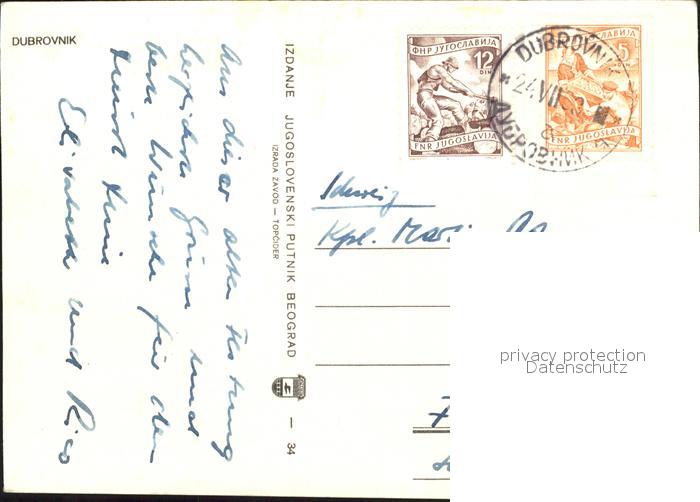 DUBROVNIK
Aus dieser alten Festung
herzliche Grüsse und
beste Wünsche für den
Dienst Deine
Elisabeth und Rico
IZDANJE JUGOSLOVENSKI PUTNIK BEOGRAD — 34
IZRADA ZAVOD — TOPČIDER
ФНР ЈУГОСЛАВИЈА
12
DIN
FNR JUGOSLAVIJA
5
FNR JUGOSLAVIJA
DUBROVNIK
24.VII
ДУБРОВНИК
Schweiz
Kpl.
privacy protection
Datenschutz